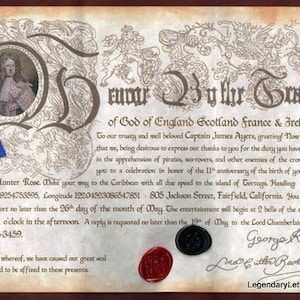 By the Gra
of God of England Scotland France & Irel
To our trusty and well beloved Captain James Ayers, greeting! Now
that we, being desirous to express our thanks to you for the duty you have
in the apprehension of pirates, sea-rovers, and other enemies of the crow
you to a celebration in honor of the 11th anniversary of the birth of you
Hunter Rose. Make your way to the Caribbean with all due speed to the island of Tortuga. Heading
Longitude 122.04923086547851 - 805 Jackson Street, Fairfield, California. You
no later than the 26th day of the month of May. The entertainment will begin at 2 bells of the
o'clock in the afternoon. A reply is requested no later than the 19th of May to the Lord Chamberlain
-3459.
George R
whereof, we have caused our great seal
to be affixed to these presents.
LegendaryLet